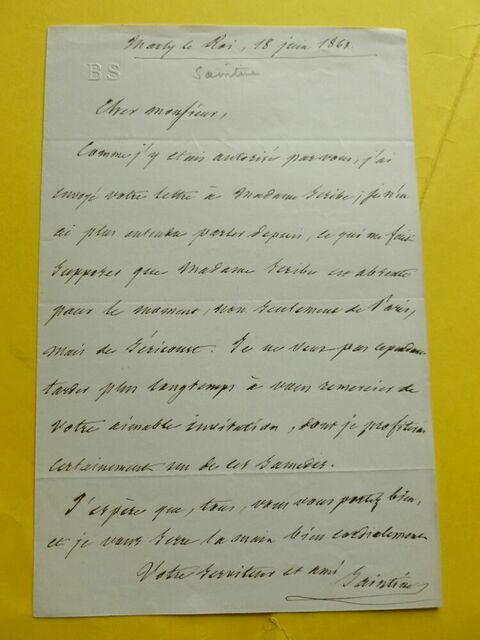 Marly le Roi, 18 juin 1863.
BS
Saintine
Cher monsieur,
Comme j'y étais autorisé par vous, j'ai
envoyé votre lettre à Madame Scribe; je n'en
ai plus entendu parler depuis, ce qui me fait
supposer que Madame Scribe est absente
pour le moment, non seulement de Paris,
mais de Séricourt. Je ne veux pas cependant
tarder plus longtemps à vous remercier de
votre aimable invitation, dont je profiterai
certainement un de ces samedis.
J'espère que, tous, vous vous portez bien,
et je vous serre la main bien cordialement
Votre serviteur et ami Saintine